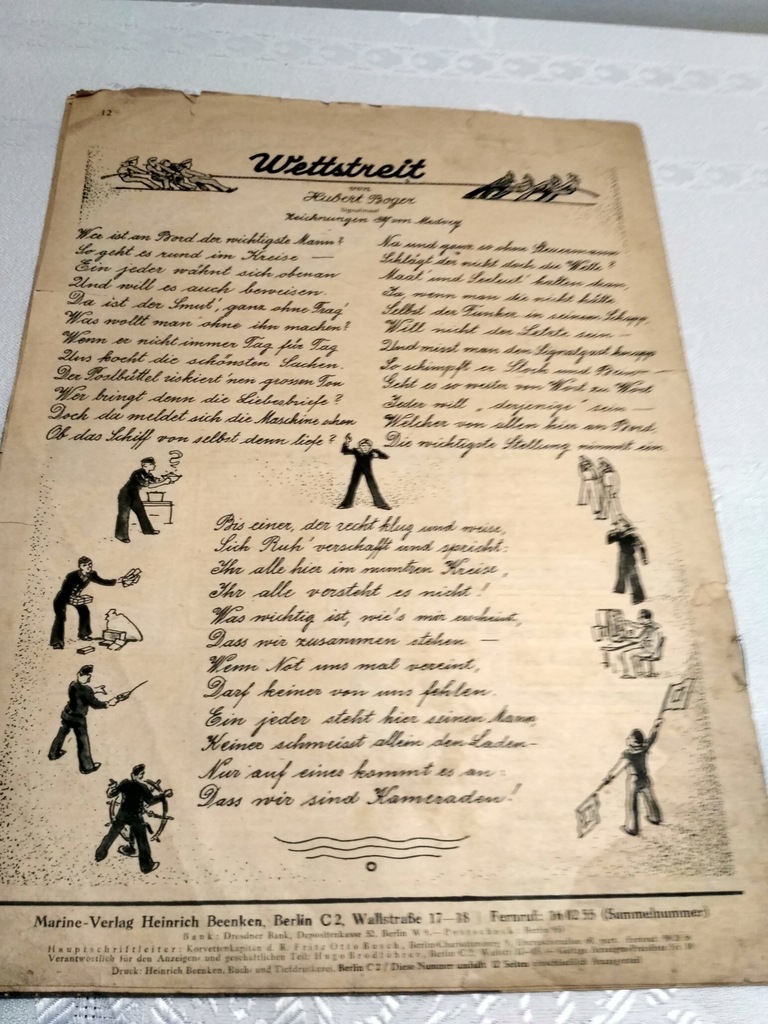 12
Wettstreit
von
Hubert Boger
Signalmaat
Zeichnungen vom
Wer ist an Bord der wichtigste Mann?
So geht es rund im Kreise —
Ein jeder wähnt sich obenan
Und will es auch beweisen.
Da ist der Smut', ganz ohne Frag'
Was wollt man ohne ihn machen?
Wenn er nicht immer Tag für Tag
Uns kocht die schönsten Sachen.
Der Postbüttel riskiert nen grossen Ton
Wer bringt denn die Liebesbriefe?
Doch da meldet sich die Maschine schon
Ob das Schiff von selbst denn liefe?
Na und ganz so ohne Steuermann
Schlägt der nicht doch die Welle?
Maat' und Seeleut' halten dran,
Ja wenn man die nicht hätte
Selbst der Funker in seinem Schapp,
Will nicht der Letzte sein —
Und misst man den Signalgast knapp
So schimpft er Stock und
Geht es so weiter von Wort zu Wort
Jeder will „derjenige" sein —
Welcher von allen hier an Bord
Die wichtigste Stellung nimmt ein.
Bis einer, der recht klug und weise,
Sich Ruh' verschafft und spricht:
Ihr alle hier im muntren Kreise,
Ihr alle versteht es nicht!
Was wichtig ist, wie's mir erscheint,
Dass wir zusammen stehen —
Wenn Not uns mal vereint,
Darf keiner von uns fehlen.
Ein jeder steht hier seinen Mann,
Keiner schmeisst allein den Laden —
Nur auf eines kommt es an:
Dass wir sind Kameraden!
Marine-Verlag Heinrich Beenken, Berlin C 2, Wallstraße 17—18 | Fernruf: (Sammelnummer)
Bank: Dresdner Bank, Depositenkasse 52, Berlin W 9. — Postscheck: Berlin
Hauptschriftleiter: Korvettenkapitän d. R. Fritz Otto Busch, Berlin-Charlottenburg
Verantwortlich für den Anzeigen- und geschäftlichen Teil: Hugo Berlin C 2,
Druck: Heinrich Beenken, Buch- und Tiefdruckerei, Berlin C 2 / Diese Nummer umfaßt 12 Seiten